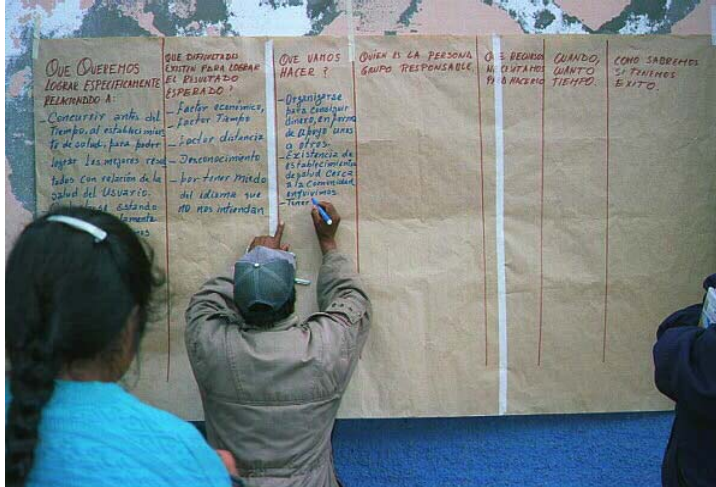 QUE QUEREMOS
LOGRAR ESPECIFICAMENTE
RELACIONADO A:
-Concurrir antes del
Tiempo, al establecimien
to de salud, para poder
lograr los mejores resul
tados con relación de la
salud del Usuario.
estando
QUE DIFICULTADES
EXISTEN PARA LOGRAR
EL RESULTADO
ESPERADO?
-Factor económico,
-Factor Tiempo
-Factor distancia
-Desconocimiento
-por tener Miedo
del idioma que
NO nos intiendan
QUE VAMOS
HACER ?
-Organizarse
para conseguir
dinero, en forma
de apoyo unos
a otros.
-Existencia de
establecimiento
de salud cerca
a la Comunidad
en que vivimos
-Tener
QUIEN ES LA PERSONA
GRUPO RESPONSABLE
QUE RECURSOS
NECESITAMOS
PARA HACERLO
CUANDO,
CUANTO
TIEMPO.
COMO SABREMOS
SI TENEMOS
EXITO.